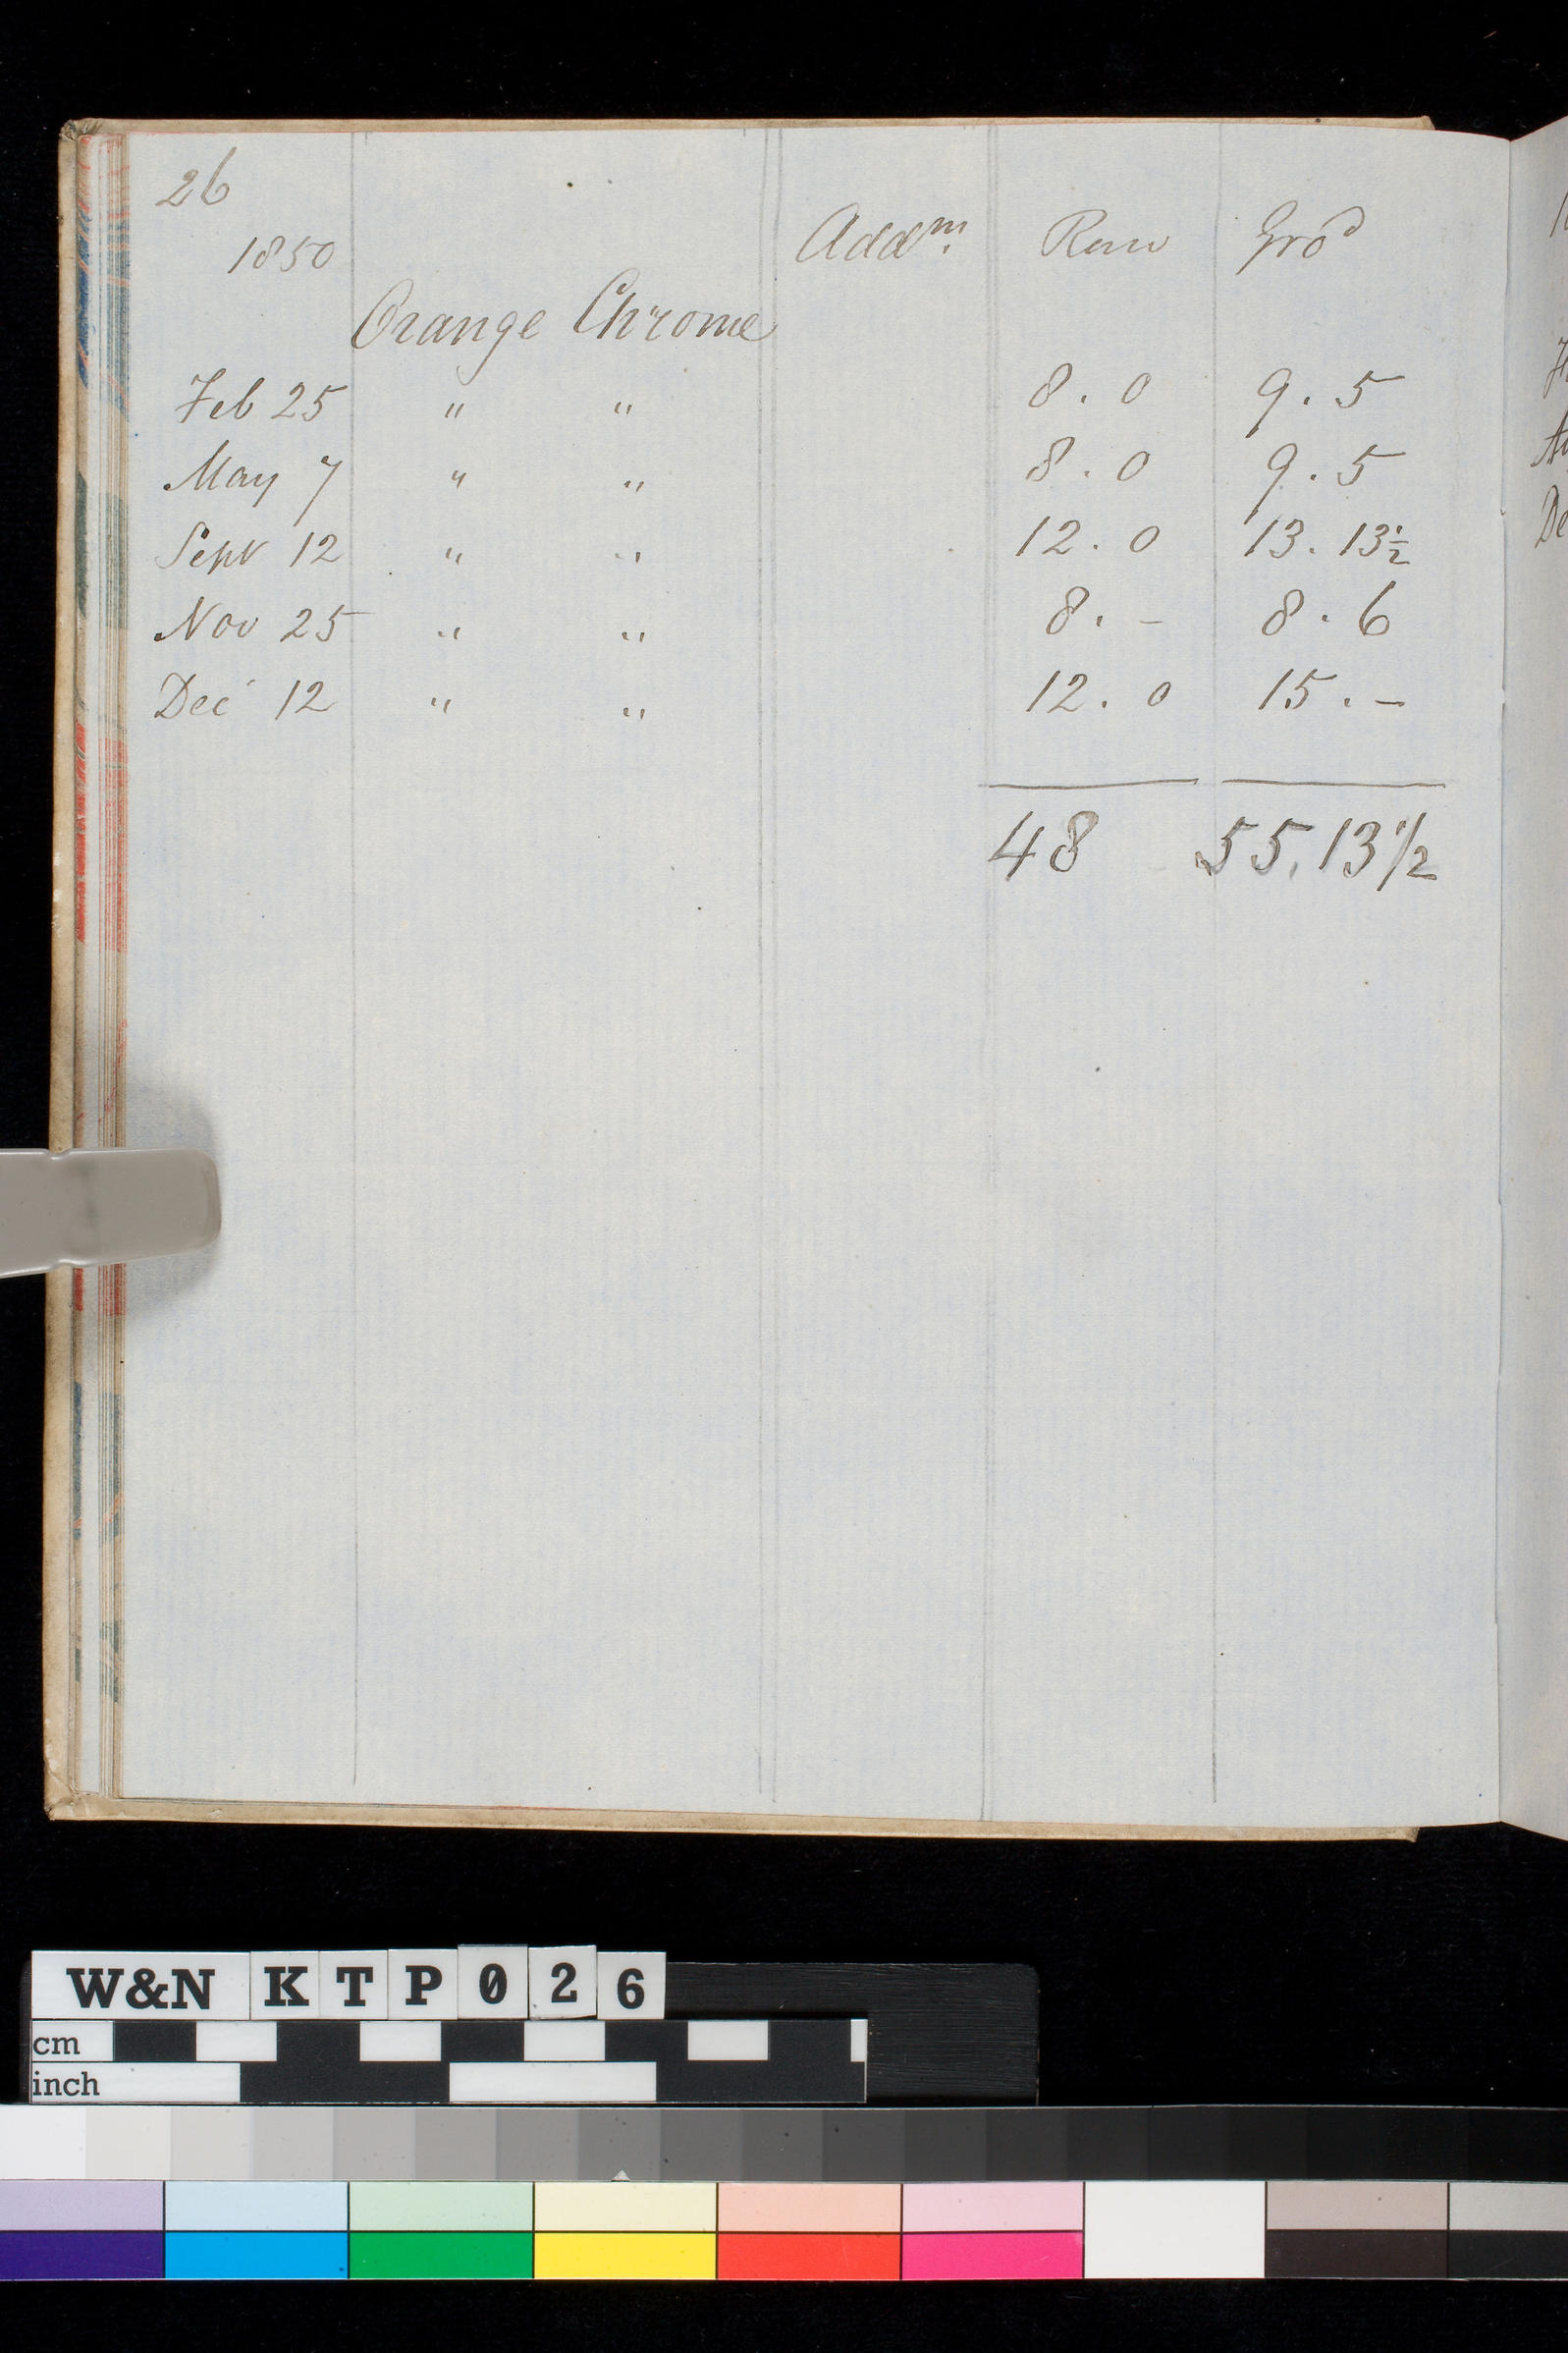 26
1850 Addm. Raw Gro͞d
Orange Chrome
Feb 25 " " 8.0 9.5
May 7 " " 8.0 9.5
Sept 12 " " 12.0 13.13½
Nov 25 " " 8.- 8.6
Dec 12 " " 12.0 15.-
48 55.13 1/2
W&N KTP026
cm
inch